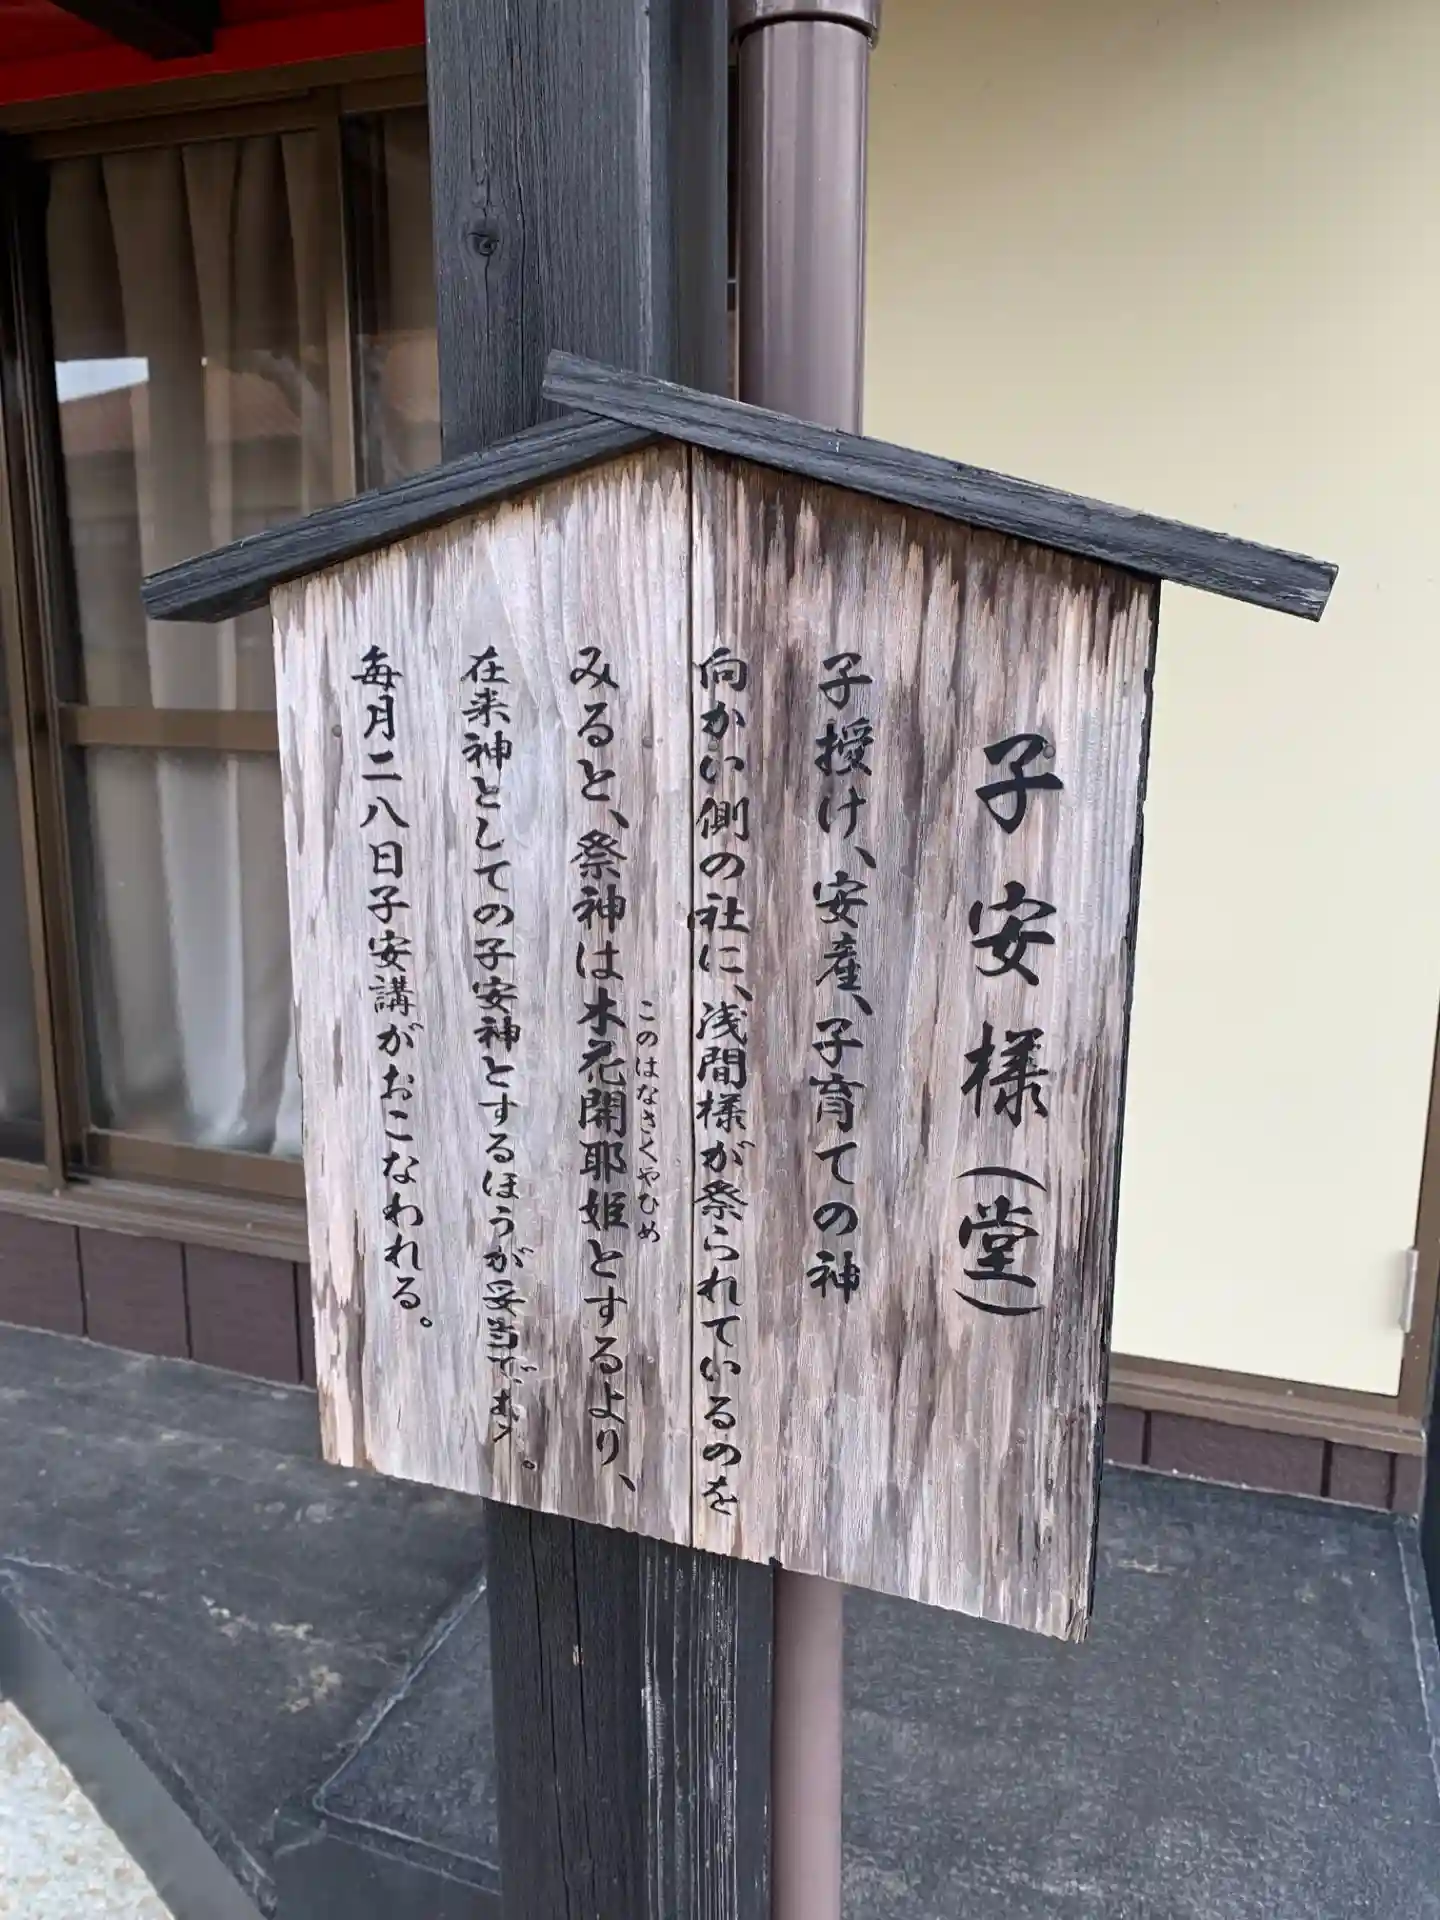 子安様（堂）
子授け、安産、子育ての神
向かい側の社に、浅間様が祭られているのを
みると、祭神は木花開耶姫とするより、
このはなさくやひめ
在来神としての子安神とするほうが妥当でむ。
毎月二八日子安講がおこなわれる。